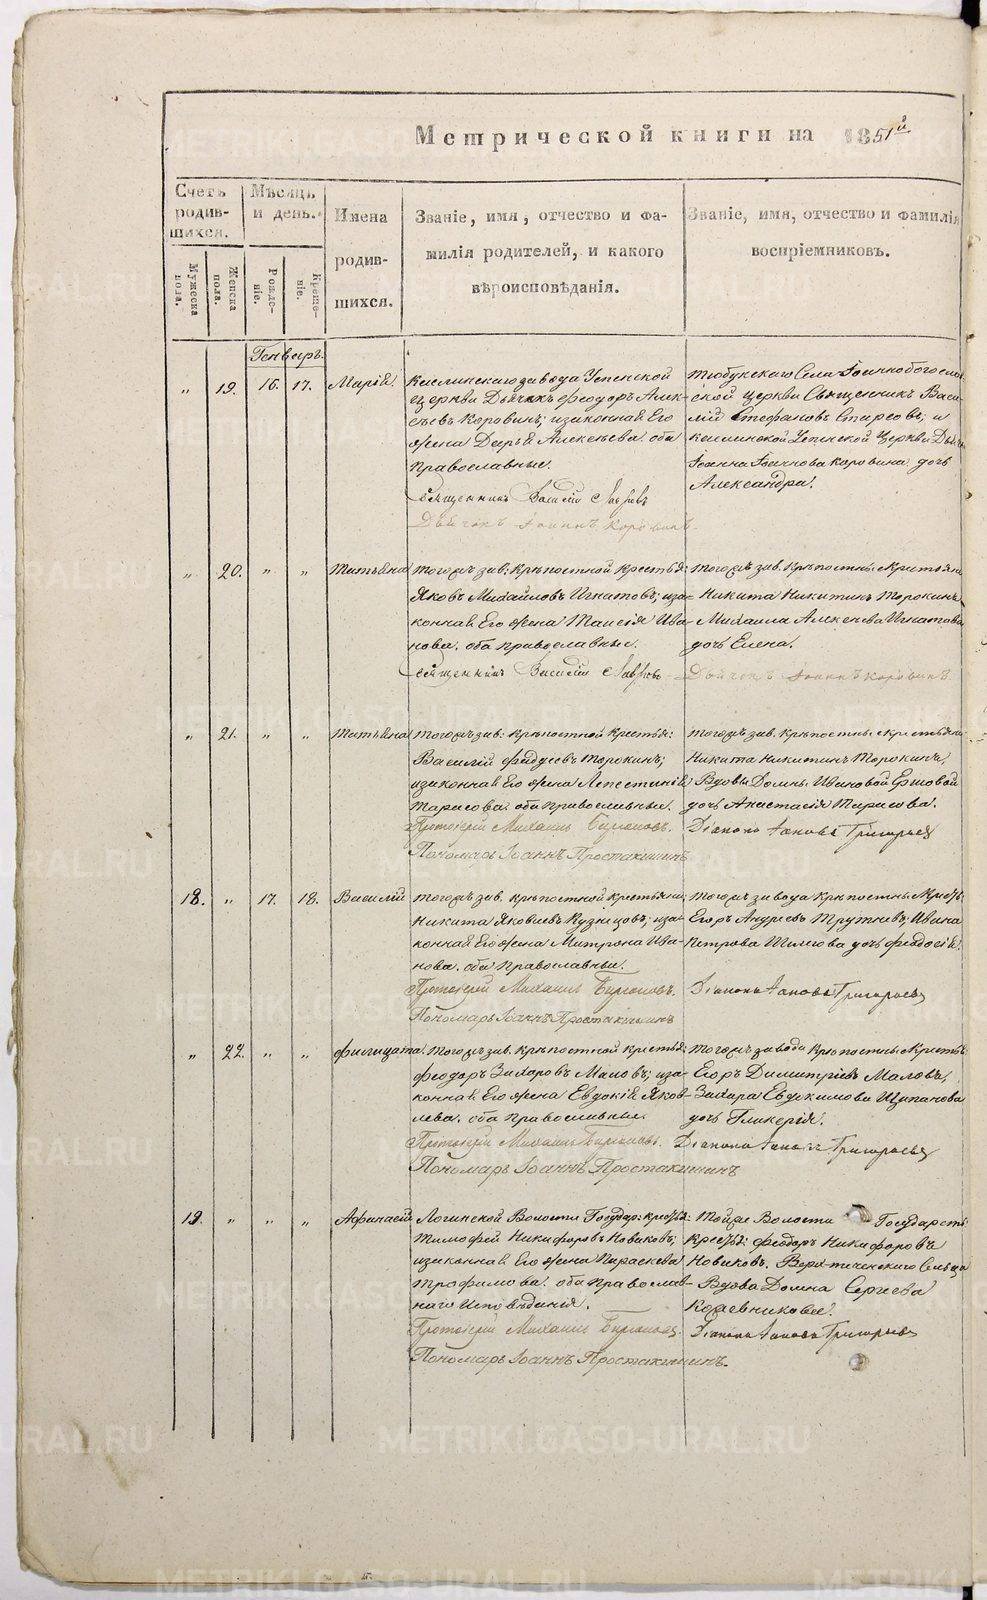 Метрической книги на 1851й
Счетъ родив-шихся.
Мужеска пола.
Женска пола.
Мѣсяцъ и день.
Рожде-ніе.
Креще-ніе.
Имена
родив-
шихся.
Званіе, имя, отчество и фа-
милія родителей, и какого
вѣроисповѣданія.
Званіе, имя, отчество и фамилія
воспріемниковъ.
Генварь.
„ 19. 16. 17. Марія.
Каслинскаго завода Успенской
церкви Дьячекъ Феодоръ Алек-
сѣевъ Коровинъ; и законная Его
жена Дарья Алексѣева. оба
православные.
Священникъ Василій Лавровъ
Дьячокъ Іоаннъ Коровинъ.
Тюбукскаго Села Іоаннобогослов-
ской церкви Священникъ Васи-
лій Стефановъ и
Каслинской Успенской Церкви
Іоанна Іоаннова Коровина дочь
Александра.
„ 20. „ „ Татьяна
тогожъ зав: крѣпостной крестья:
Яковъ Михайловъ Игнатовъ; и за-
конная Его жена Таисія Ива-
нова. оба православные.
Священникъ Василій Лавровъ
тогожъ зав. крѣпостные крестьяне
Никита Никитинъ Торокинъ
Михаила Алексѣева Игнатова
дочь Елена.
Дьячокъ Іоаннъ Коровинъ.
„ 21. „ „ Татьяна
тогожъ зав: крѣпостной крестья:
Василій Фадѣевъ Торокинъ;
и законная Его жена
Тарасова. оба Православные.
Протоіерей Михаилъ Бирюковъ.
Пономарь Іоаннъ Простакишинъ
тогожъ зав. крѣпостные крестьяне
Никита Никитинъ Торокинъ,
Вдовы Домны Ивановой Ершовой
дочь Анастасія Тарасова.
Діаконъ Іаковъ Григорьевъ
18. „ 17. 18. Василій
тогожъ зав. крѣпостной крестьяни:
Никита Яковлевъ Кузнецовъ; и за-
конная Его жена Матрона Ива-
нова. оба Православные.
Протоіерей Михаилъ Бирюковъ.
Пономарь Іоаннъ Простакишинъ
тогожъ завода крѣпостные
Егоръ Андреевъ Трутневъ; Ивана
Петрова дочь Феодосія.
Діаконъ Іаковъ Григорьевъ
„ 22. „ „ Филицата.
тогожъ зав. крѣпостной крестья:
Феодоръ Захаровъ Маловъ; и за-
конная Его жена Евдокія Яков-
лева. оба Православные
Протоіерей Михаилъ Бирюковъ.
Пономарь Іоаннъ Простакишинъ
тогожъ завода крѣпостные крестья:
Егоръ Димитріевъ Маловъ,
Захара Евдокимова Щипанова
дочь Гликерія.
Діаконъ Іаковъ Григорьевъ
19. „ „ „ Афанасій
Логинской Волости Государ: крестья:
Тимофей Никифоровъ Новиковъ;
и законная Его жена Параскева
Трофимова. оба Православ-
наго Исповѣданія.
Протоіерей Михаилъ Бирюковъ.
Пономарь Іоаннъ Простакишинъ.
Тойже Волости Государств:
крестья: Феодоръ Никифоровъ
Новиковъ. Сельца
Вдова Домна Сергеева
Кожевникова.
Діаконъ Іаковъ Григорьевъ
METRIKI.GASO-URAL.RU